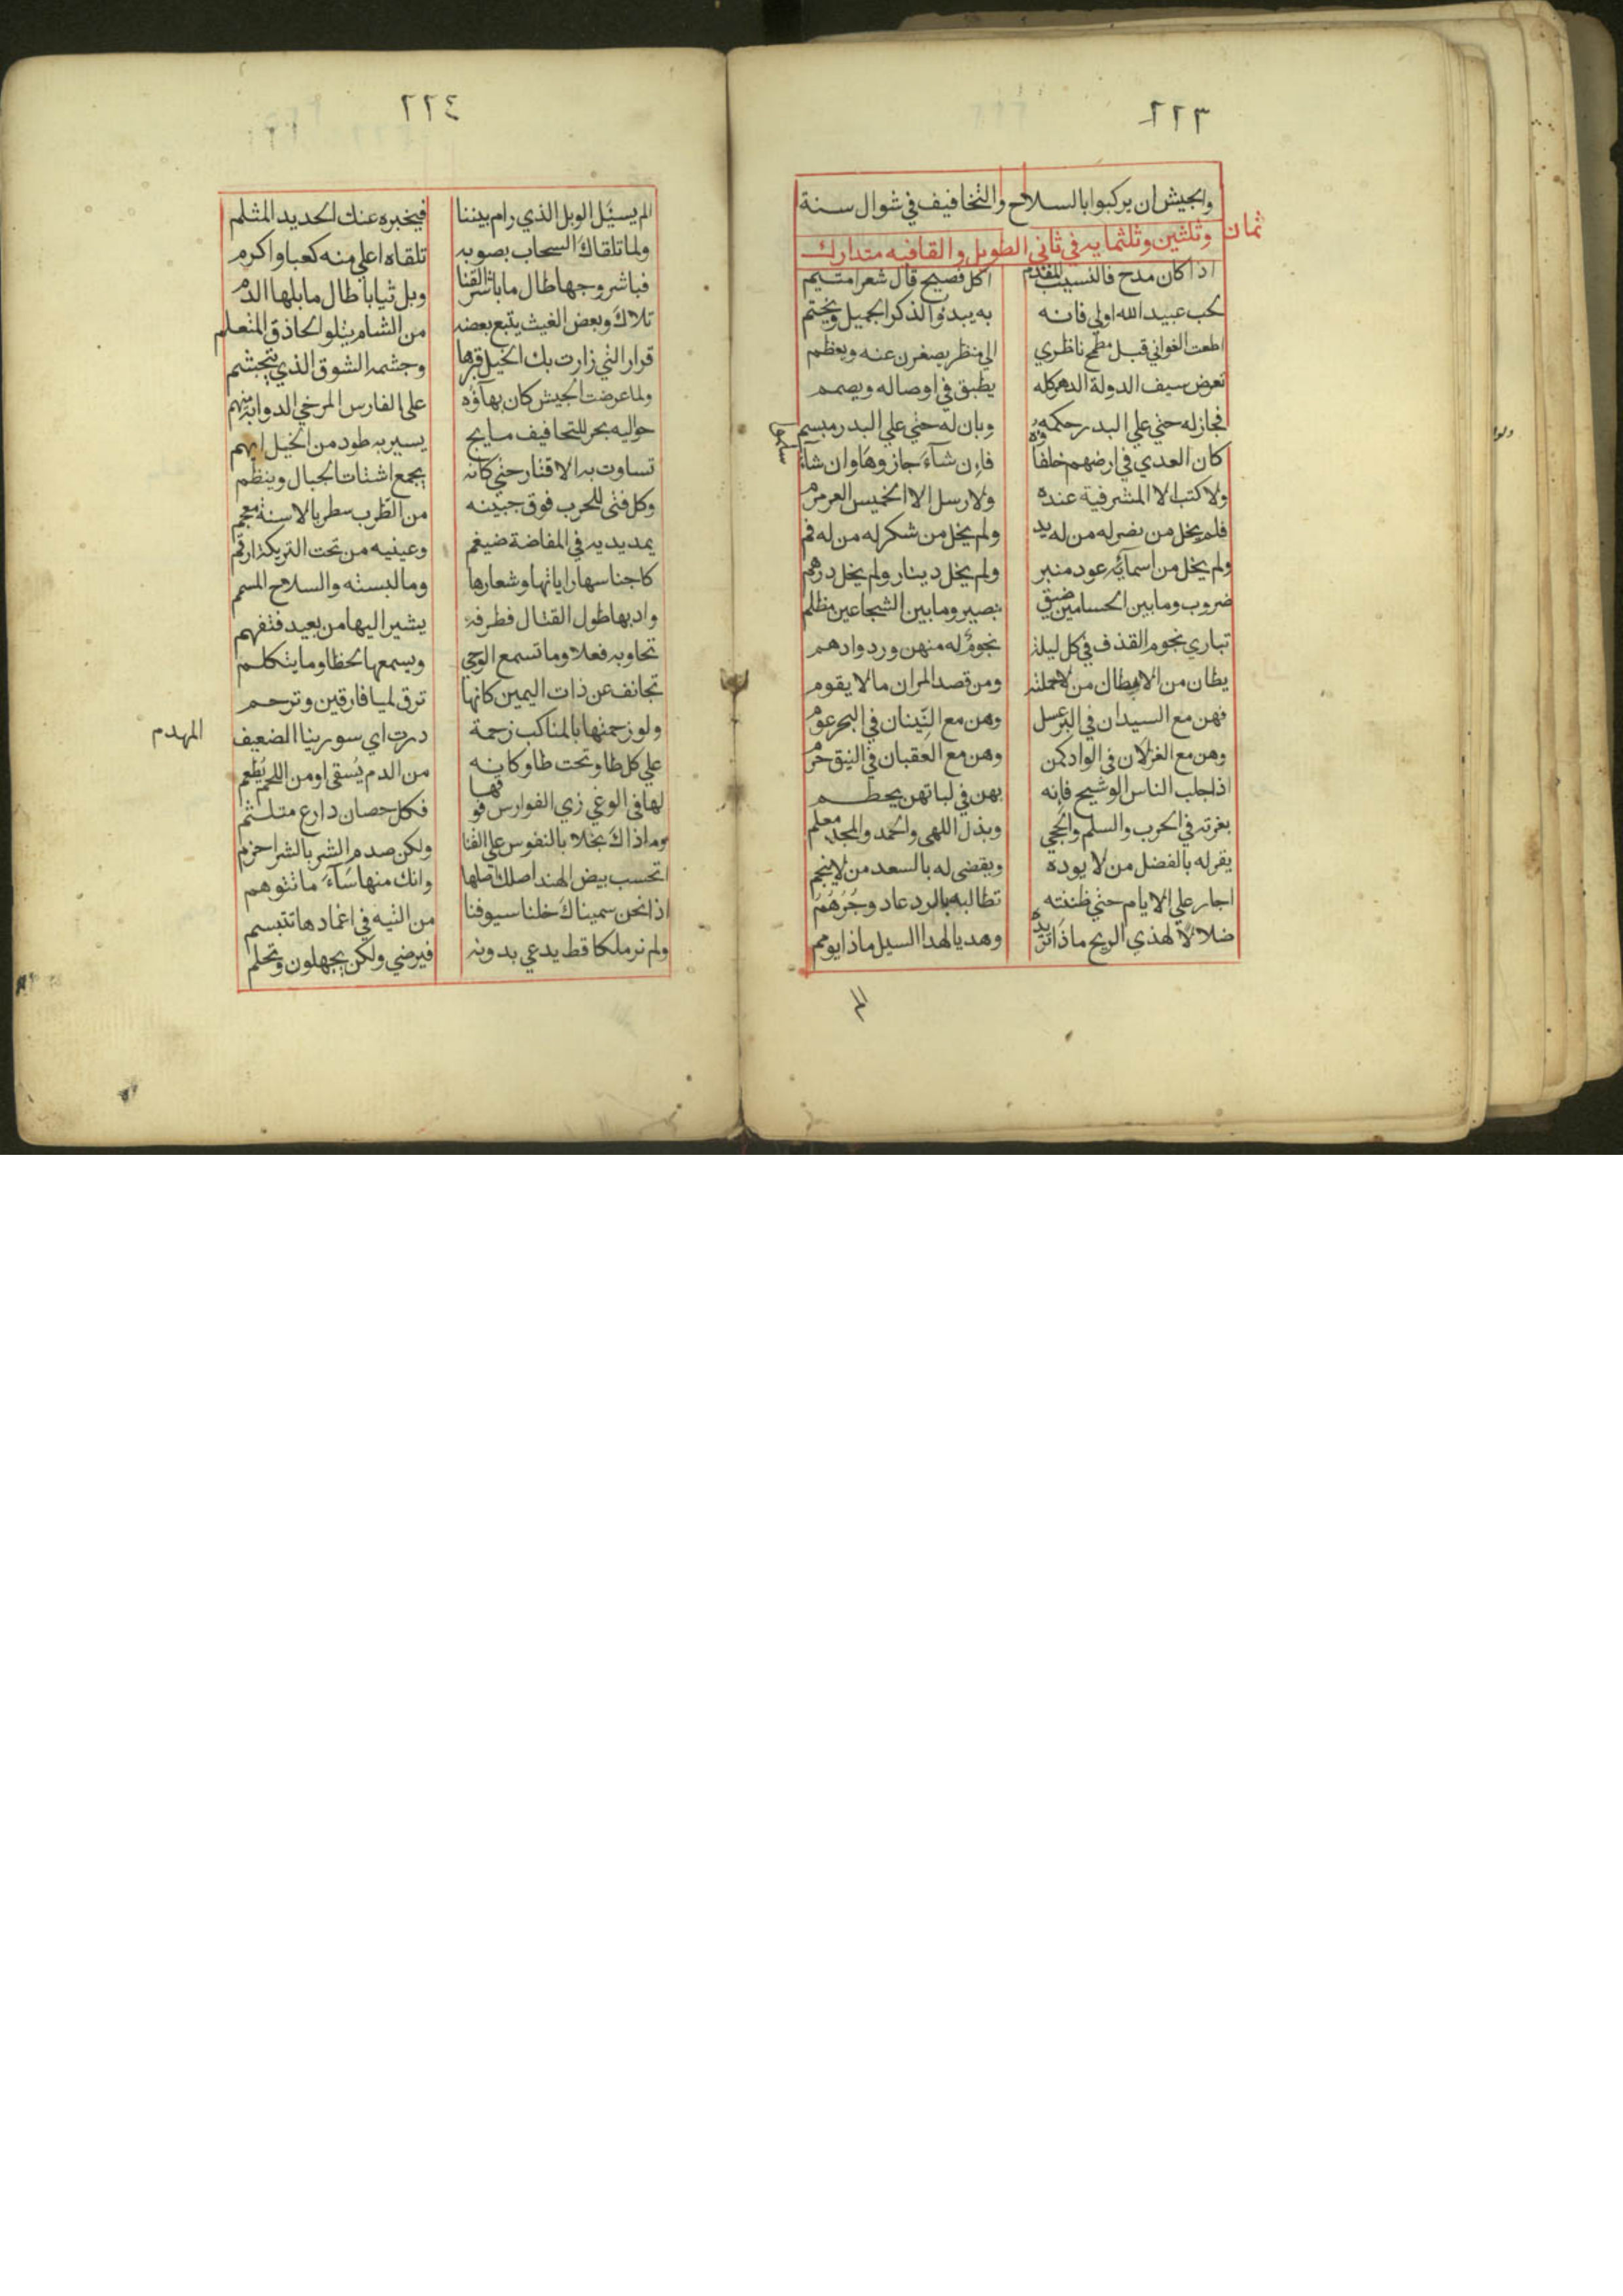 ٢٢٣
والجيش ان يركبوا بالسلاح والتخافيف في شوال سنة
ثمان وثلثين وثلثمايه في ثاني الطويل والقافيه متدارك
اذا كان مدح فالنسيب المقدم اكل فصيح قال شعرا متيم
لحب عبيد الله اولي فانه به يبدؤ الذكر الجميل ويختم
اطعت الغواني قبل مطمح ناظري الي منظر يصغرن عنه ويعظم
تعرض سيف الدولة الدهر كله يطبق في اوصاله ويصمم
فجاز له حتي علي البدر حكمه وبان له حتي علي البدر مبسم
كان العدي في ارضهم خلفاوه فان شآء جازوها وان شآء سلموا
ولا كتب الا المشرفية عنده ولا رسل الا الخميس العرمرم
فلم يخل من نصر له من له يد ولم يخل من شكر له من له فم
ولم يخل من اسمآئه عود منبر ولم يخل دينار ولم يخل درهم
ضروب وما بين الحسامين ضيق بصير وما بين الشجاعين مظلم
تباري نجوم القذف في كل ليلة نجوم له منهن ورد وادهم
يطان من الابطال من لا حملنه ومن قصد المران ما لا يقوم
فهن مع السيدان في البر عسل وهن مع النينان في البحر عوم
وهن مع الغزلان في الواد كمن وهن مع العقبان في النيق حوم
اذا جلب الناس الوشيج فانه بهن في لباتهن يحطم
بغرته في الحرب والسلم والحجي وبذل اللهى والحمد والمجد معلم
يقر له بالفضل من لا يوده ويقضى له بالسعد من لا ينجم
اجار علي الايام حتي ظننته تطالبه بالرد عاد وجرهم
ضلالا لهذي الريح ماذا تريده وهديا لهذا السيل ماذا يومم
الم
٢٢٤
الم يسئل الوبل الذي رام بيننا فيخبره عنك الحديد المثلم
ولما تلقاك السحاب بصوبه تلقاه اعلي منه كعبا واكرم
فباشر وجها طال ما باشر القنا وبل ثيابا طال ما بلها الدم
تلاك وبعض الغيث يتبع بعضه من الشام يتلو الحاذق المتعلم
قزار التي زارت بك الخيل قبرها وجشمه الشوق الذي يتجشم
ولما عرضت الجيش كان بهآؤه على الفارس المرخي الدوابة منهم
حواليه بحر للتجافيف مايج يسير به طود من الخيل ايهم
تساوت به الاقتار حتي كانه يجمع اشتات الجبال وينظم
وكل فتى للحرب فوق جبينه من الظرب سطر بالاسنة معجم
يمد يديه في المفاضة ضيغم وعينيه من تحت التريكة ارقم
كاجناسها راياتها وشعارها وما لبسته والسلاح المسمم
وادبها طول القتال فطرفه يشير اليها من بعيد فتفهم
تجاوبه فعلا وما تسمع الوحي ويسمعها لحظا وما يتكلم
تجانف عن ذات اليمين كانها ترق لميافارقين وترحم
ولو زحمتها بالمناكب زحمة درت اي سورينا الضعيف المهدم
علي كل طاو تحت طاو كانه من الدم يسقى او من اللحم يطعم
لها في الوغي زي الفوارس فوقها فكل حصان دارع متلثم
وما ذاك بخلا بالنفوس علي القنا ولكن صدم الشر بالشر احزم
اتحسب بيض الهند اصلك اصلها وانك منها سآء ما تتوهم
اذا نحن سميناك خلنا سيوفنا من التيه في اغمادها تتبسم
ولم نر ملكا قط يدعي بدونه فيرضي ولكن يجهلون وتحلم